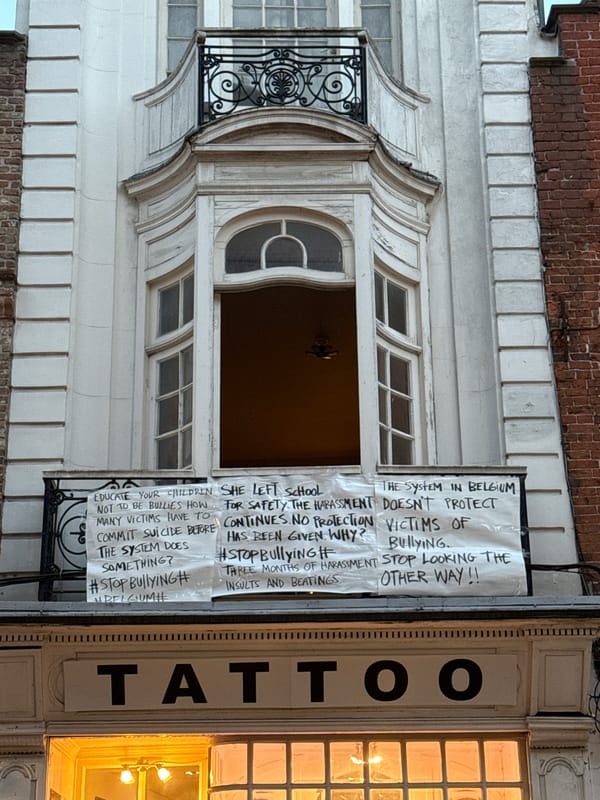 EDUCATE YOUR CHILDREN
NOT TO BE BULLIES HOW
MANY VICTIMS HAVE TO
COMMIT SUICIDE BEFORE
THE SYSTEM DOES
SOMETHING?
#STOPBULLYING#
#BELGIUM#
SHE LEFT SCHOOL
FOR SAFETY. THE HARASSMENT
CONTINUES. NO PROTECTION
HAS BEEN GIVEN. WHY?
#STOPBULLYING#
THREE MONTHS OF HARASSMENT
INSULTS AND BEATINGS
THE SYSTEM IN BELGIUM
DOESN'T PROTECT
VICTIMS OF
BULLYING.
STOP LOOKING THE
OTHER WAY!!
TATTOO